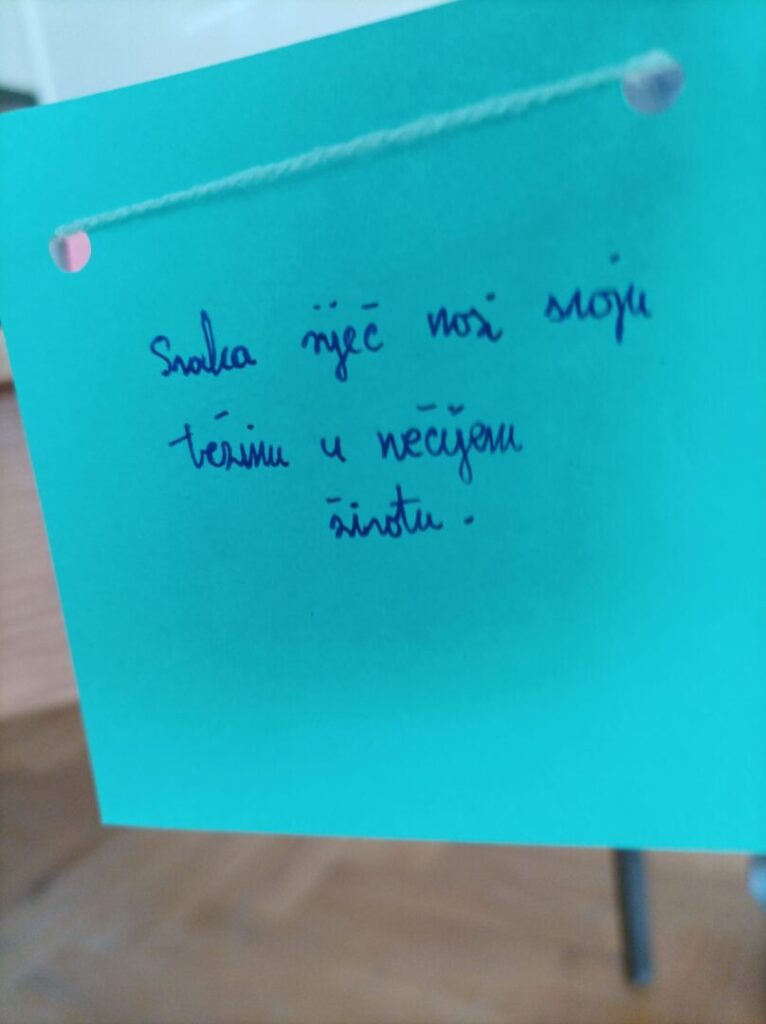 Svaka riječ nosi svoju
težinu u nečijem
životu.